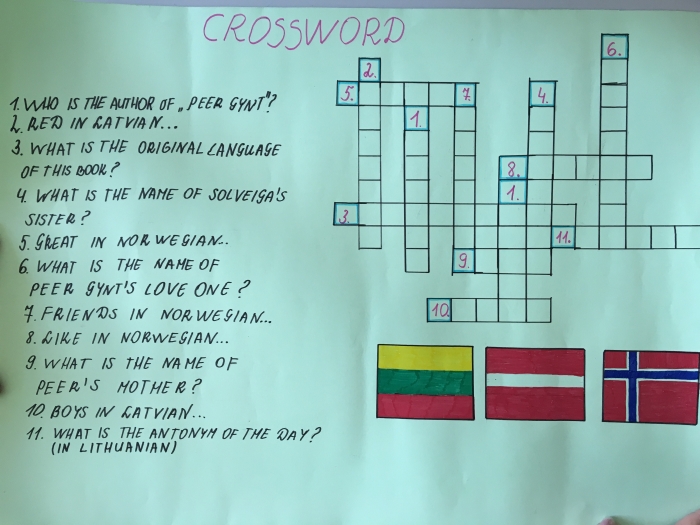 CROSSWORD
1. WHO IS THE AUTHOR OF „PEER GYNT"?
2. RED IN LATVIAN...
3. WHAT IS THE ORIGINAL LANGUAGE
OF THIS BOOK?
4. WHAT IS THE NAME OF SOLVEIGA'S
SISTER?
5. GREAT IN NORWEGIAN..
6. WHAT IS THE NAME OF
PEER GYNT'S LOVE ONE?
7. FRIENDS IN NORWEGIAN...
8. LIKE IN NORWEGIAN...
9. WHAT IS THE NAME OF
PEER'S MOTHER?
10. BOYS IN LATVIAN...
11. WHAT IS THE ANTONYM OF THE DAY?
(IN LITHUANIAN)
6.
2.
5. 7. 4.
1.
8.
1.
3.
11.
9.
10.